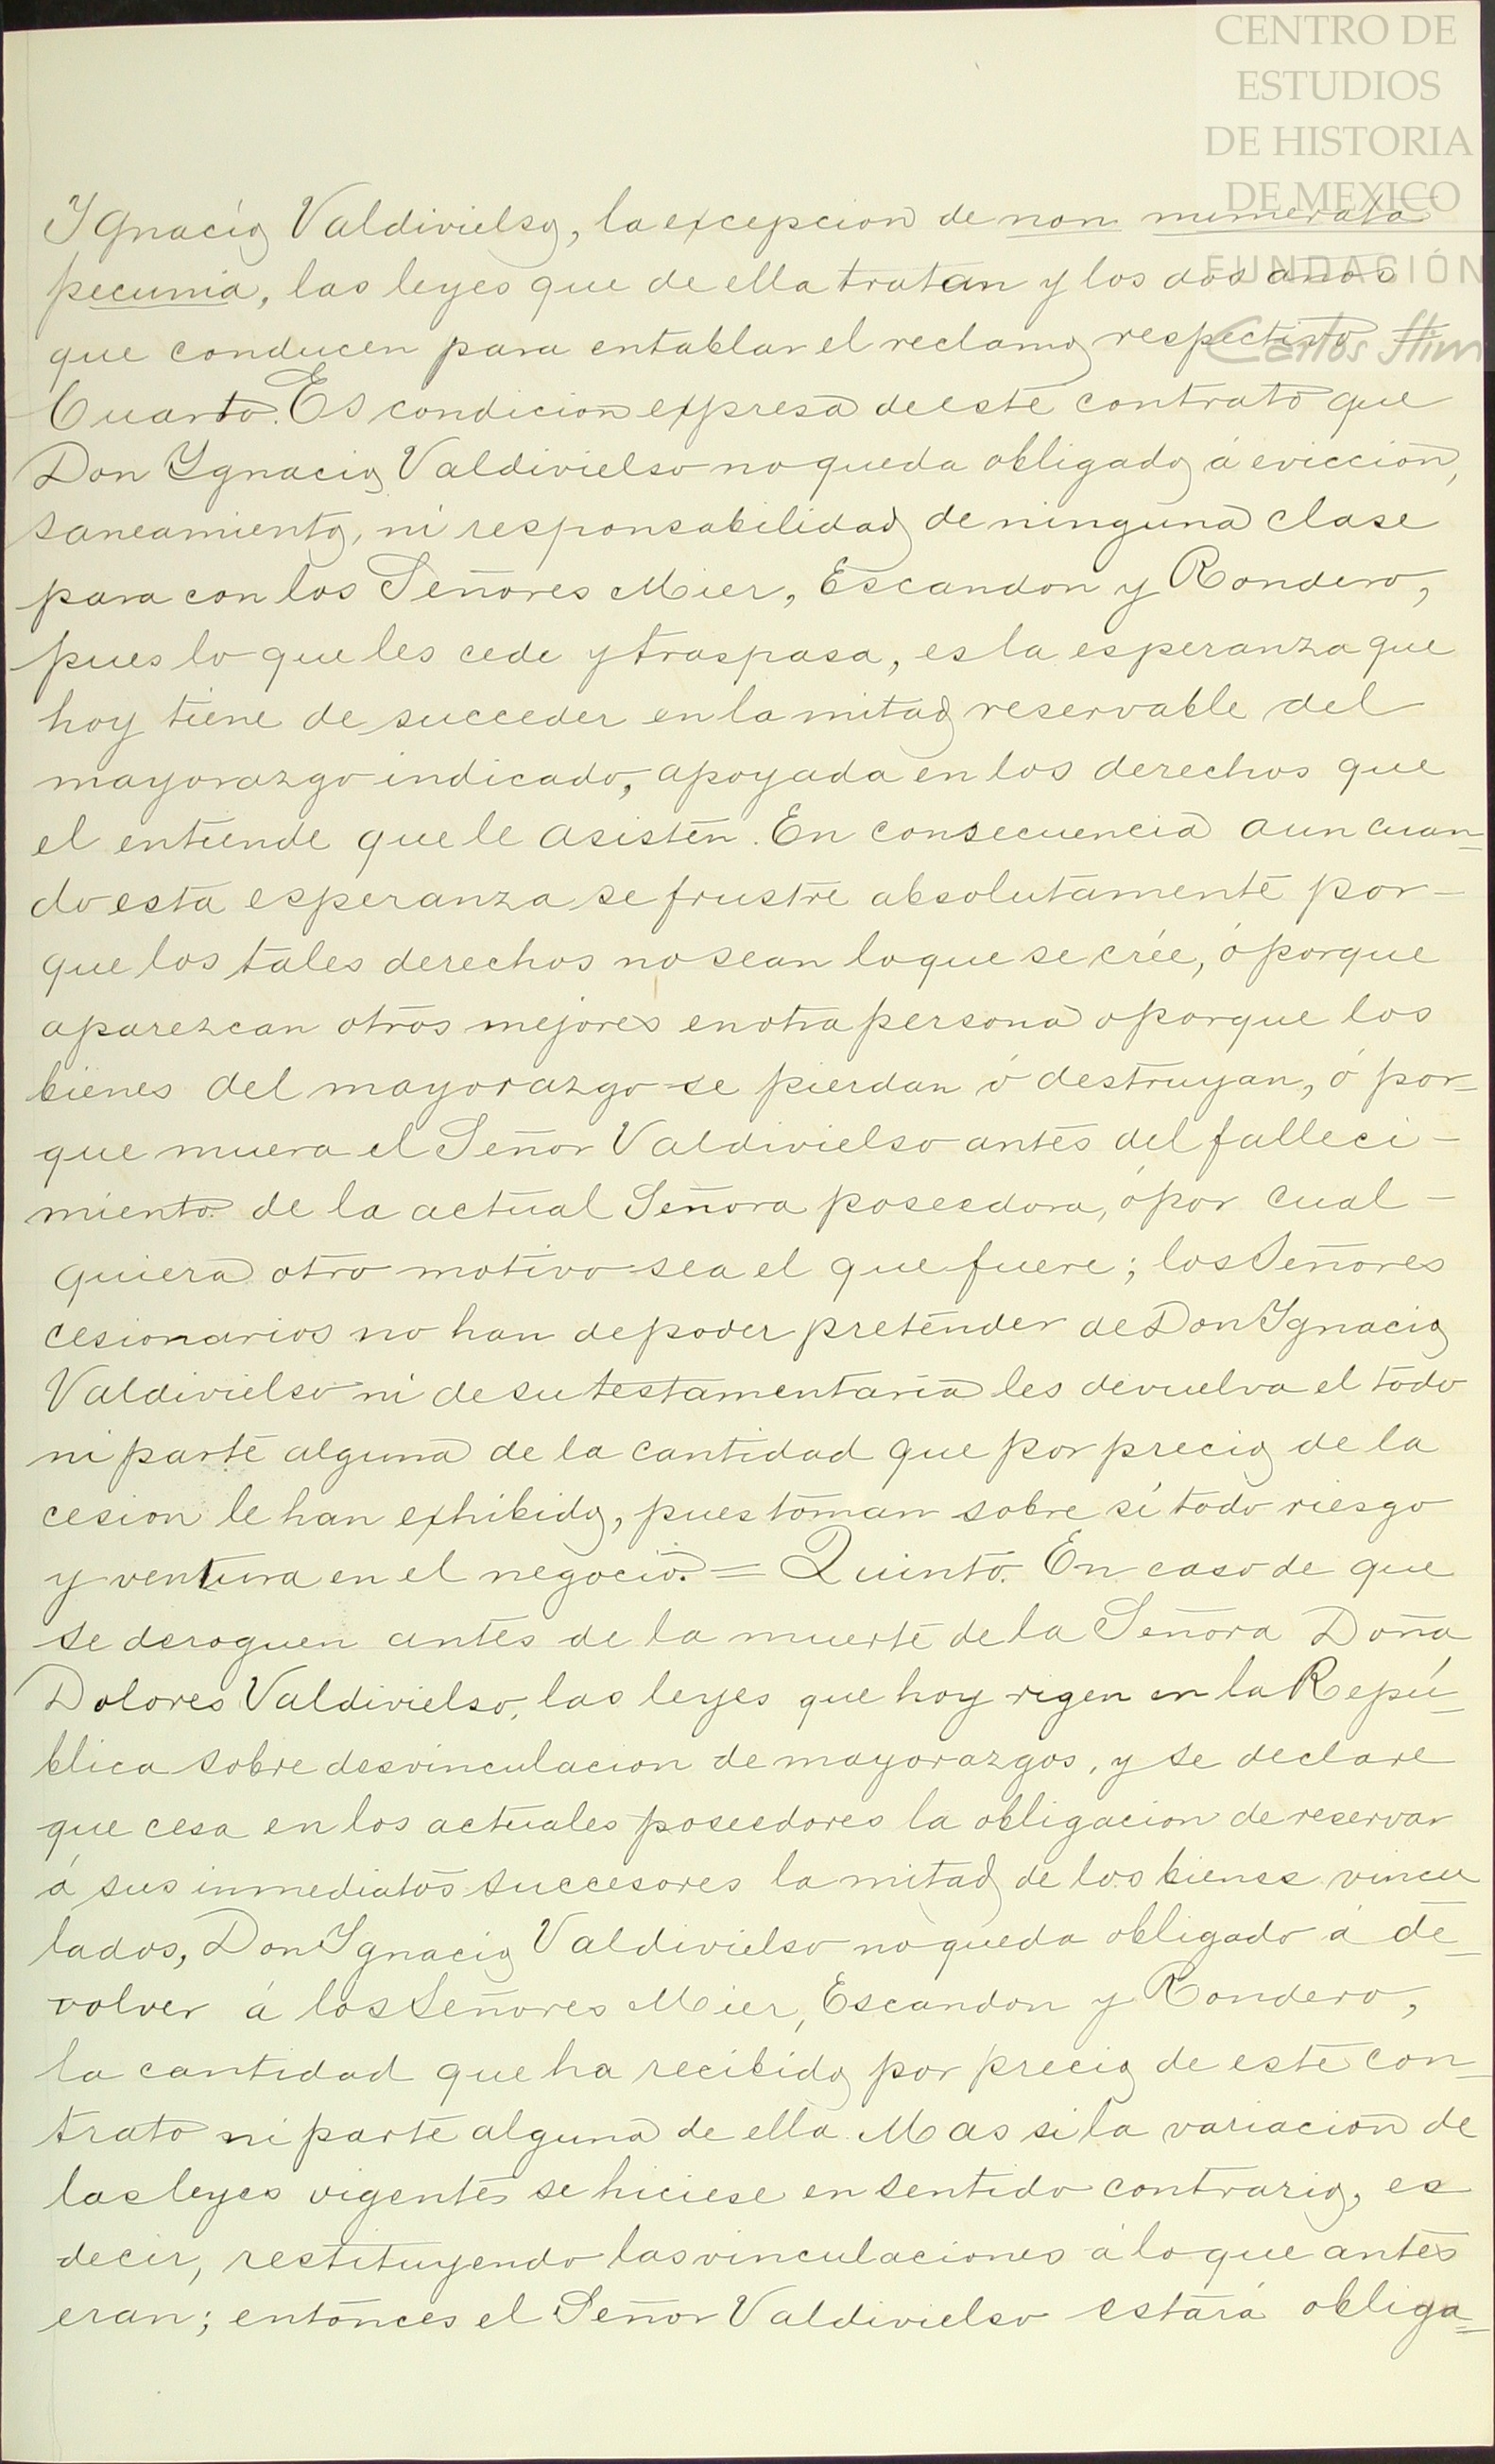 CENTRO DE
ESTUDIOS
DE HISTORIA
DE MEXICO
FUNDACIÓN
Carlos Slim
Ygnacio Valdivielso, la excepcion de non numerata
pecunia, las leyes que de ella tratan y los dos años
que conducen para entablar el reclamo respectivo =
Cuarto. Es condicion expresa de este contrato que
Don Ygnacio Valdivielso no queda obligado á eviccion,
saneamiento, ni responsabilidad de ninguna clase
para con los Señores Mier, Escandon y Rondero,
pues lo que les cede y traspasa, es la esperanza que
hoy tiene de succeder en la mitad reservable del
mayorazgo indicado, apoyada en los derechos que
el entiende que le asisten. En consecuencia aun cuan=
do esta esperanza se frustre absolutamente por-
que los tales derechos no sean lo que se crée, ó porque
aparezcan otros mejores en otra persona o porque los
bienes del mayorazgo se pierdan ó destruyan, ó por=
que muera el Señor Valdivielso antes del falleci-
miento de la actual Señora poseedora, ó por cual-
quiera otro motivo sea el que fuere; los Señores
cesionarios no han de poder pretender de Don Ygnacio
Valdivielso ni de su testamentaría les devuelva el todo
ni parte alguna de la cantidad que por precio de la
cesion le han exhibido, pues toman sobre sí todo riesgo
y ventura en el negocio. = Quinto. En caso de que
se deroguen antes de la muerte de la Señora Doña
Dolores Valdivielso, las leyes que hoy rigen en la Repú=
blica sobre desvinculacion de mayorazgos, y se declare
que cesa en los actuales poseedores la obligacion de reservar
á sus inmediatos succesores la mitad de los bienes vincu
lados, Don Ygnacio Valdivielso no queda obligado á de=
volver á los Señores Mier, Escandon y Rondero,
la cantidad que ha recibido por precio de este con=
trato ni parte alguna de ella. Mas si la variacion de
las leyes vigentes se hiciese en sentido contrario, es
decir, restituyendo las vinculaciones á lo que antes
eran; entonces el Señor Valdivielso estará obliga=